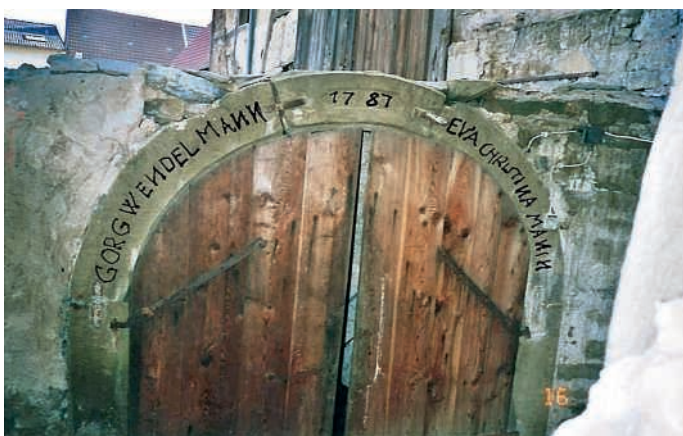 GORG WENDEL MANN
1787
EVA CHRISTINA MANIN
16